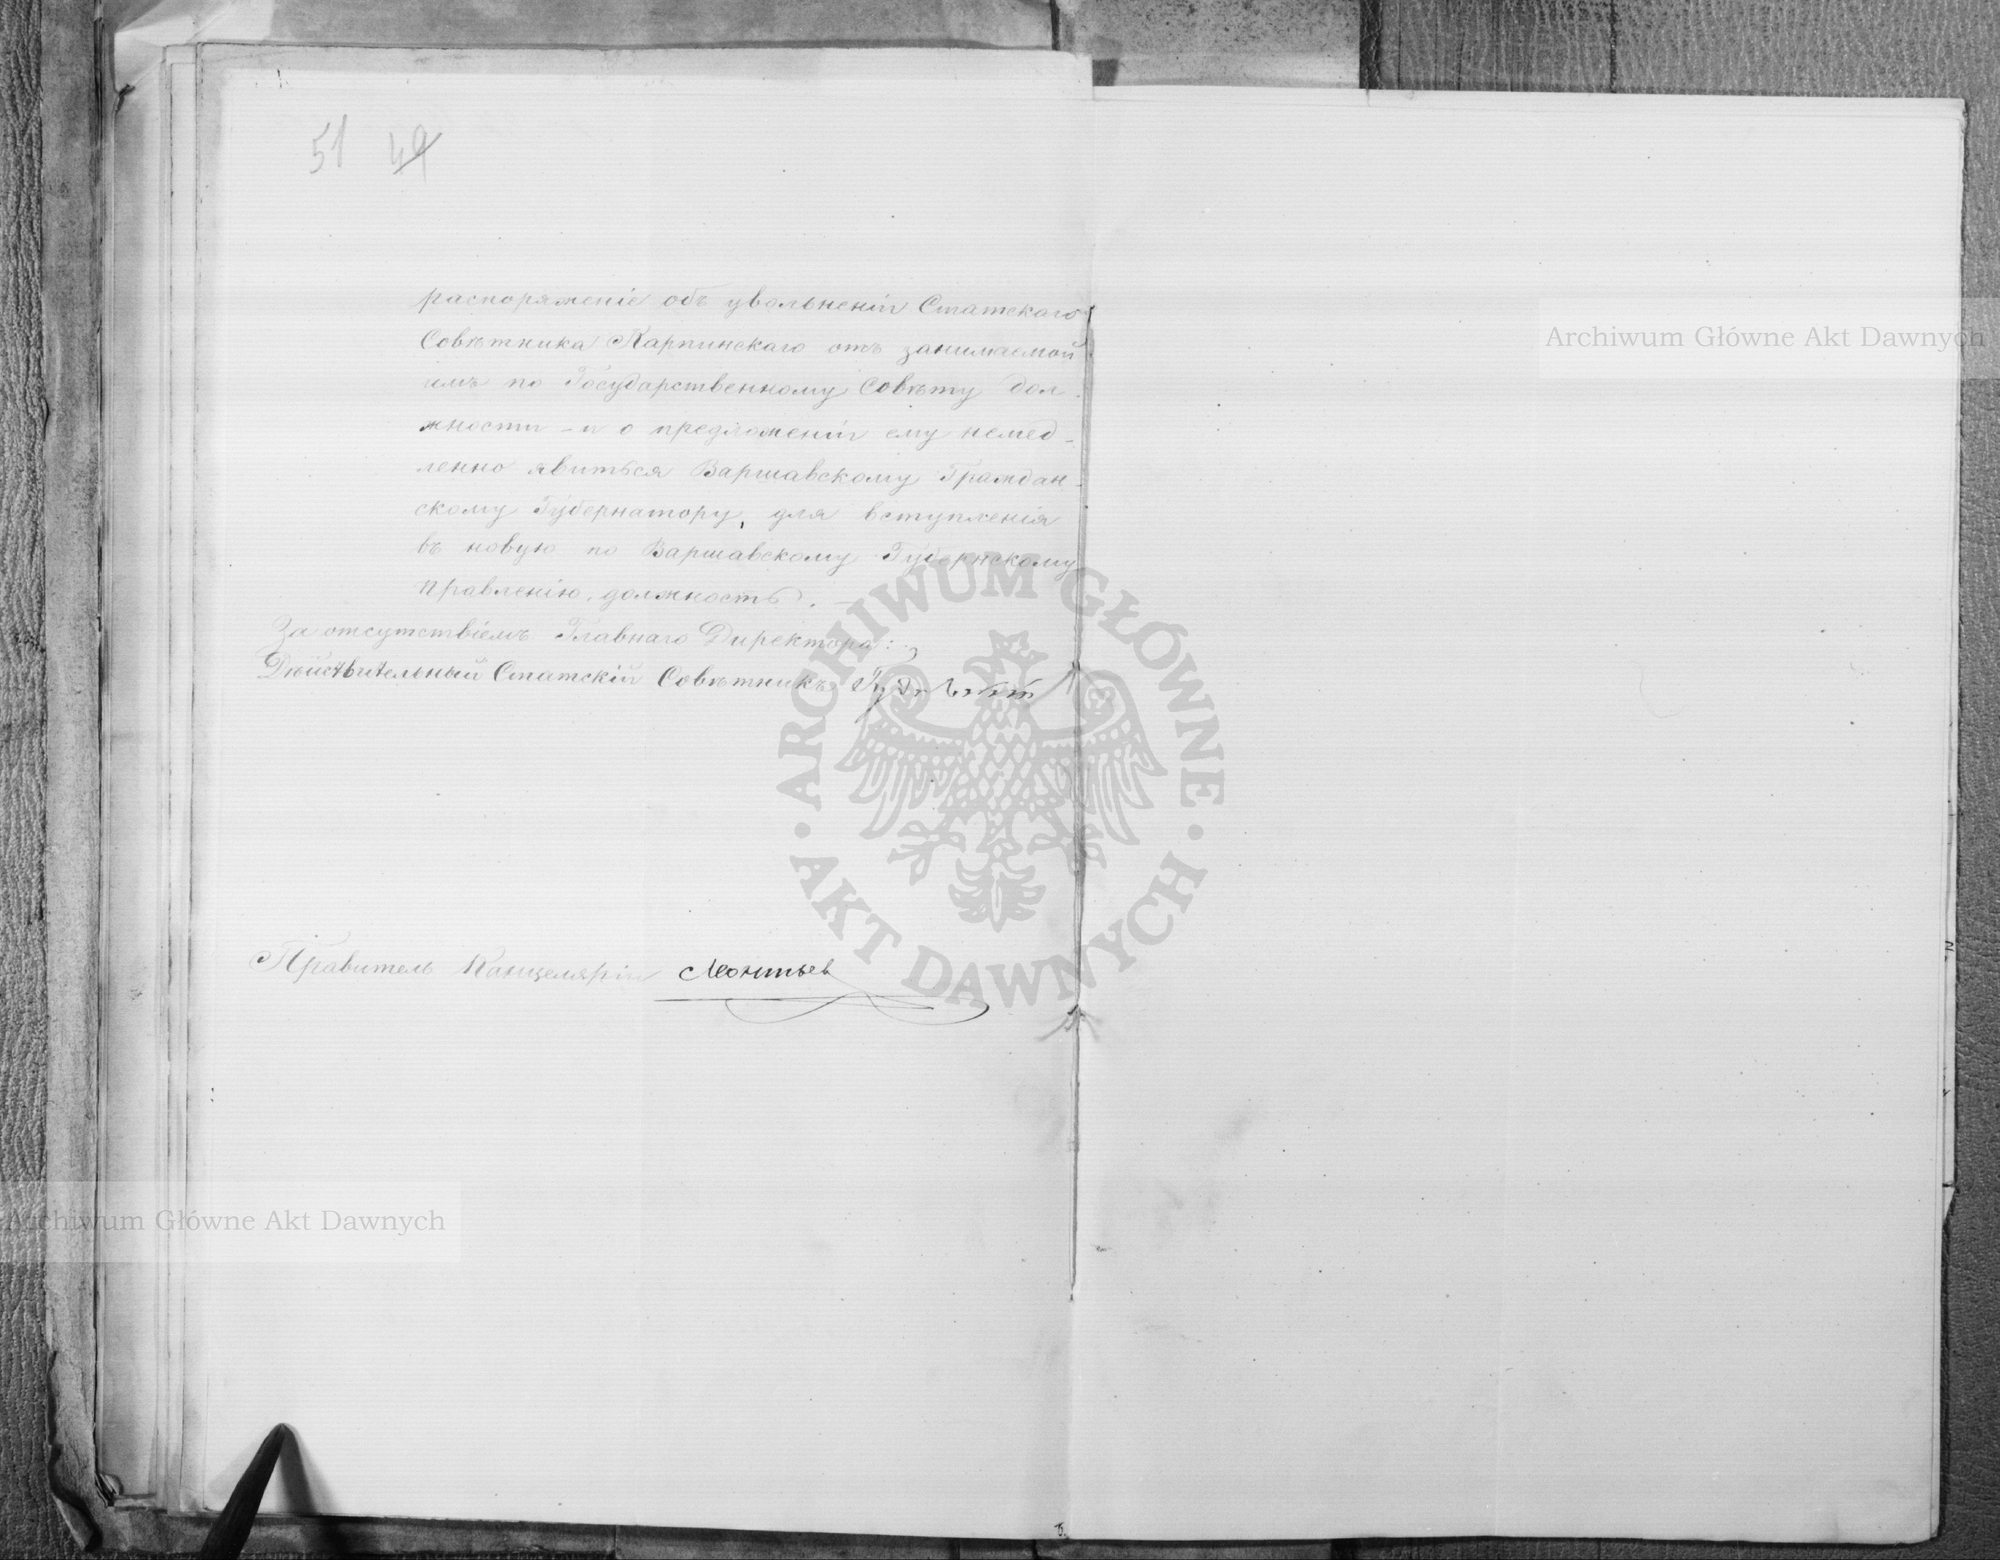 51 49
распоряженіе объ увольненіи Статскаго
Совѣтника Карпинскаго отъ занимаемой
имъ по Государственному Совѣту дол-
жности - и о предложеніи ему немед-
ленно явиться Варшавскому Граждан-
скому Губернатору, для вступленія
въ новую по Варшавскому Губернскому
Правленію должность. —
За отсутствіемъ Главнаго Директора:
Дѣйствительный Статскій Совѣтникъ
Правитель Канцеляріи Леонтьев
Archiwum Główne Akt Dawnych
Archiwum Główne Akt Dawnych
ARCHIWUM GŁÓWNE
AKT DAWNYCH